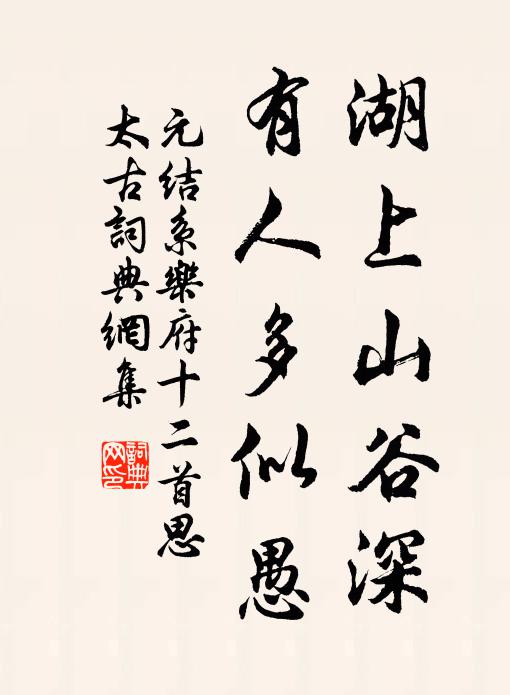 湖上山谷深
有人多似愚
元结系樂府十二首思
太古詞典網集
詞典
网印